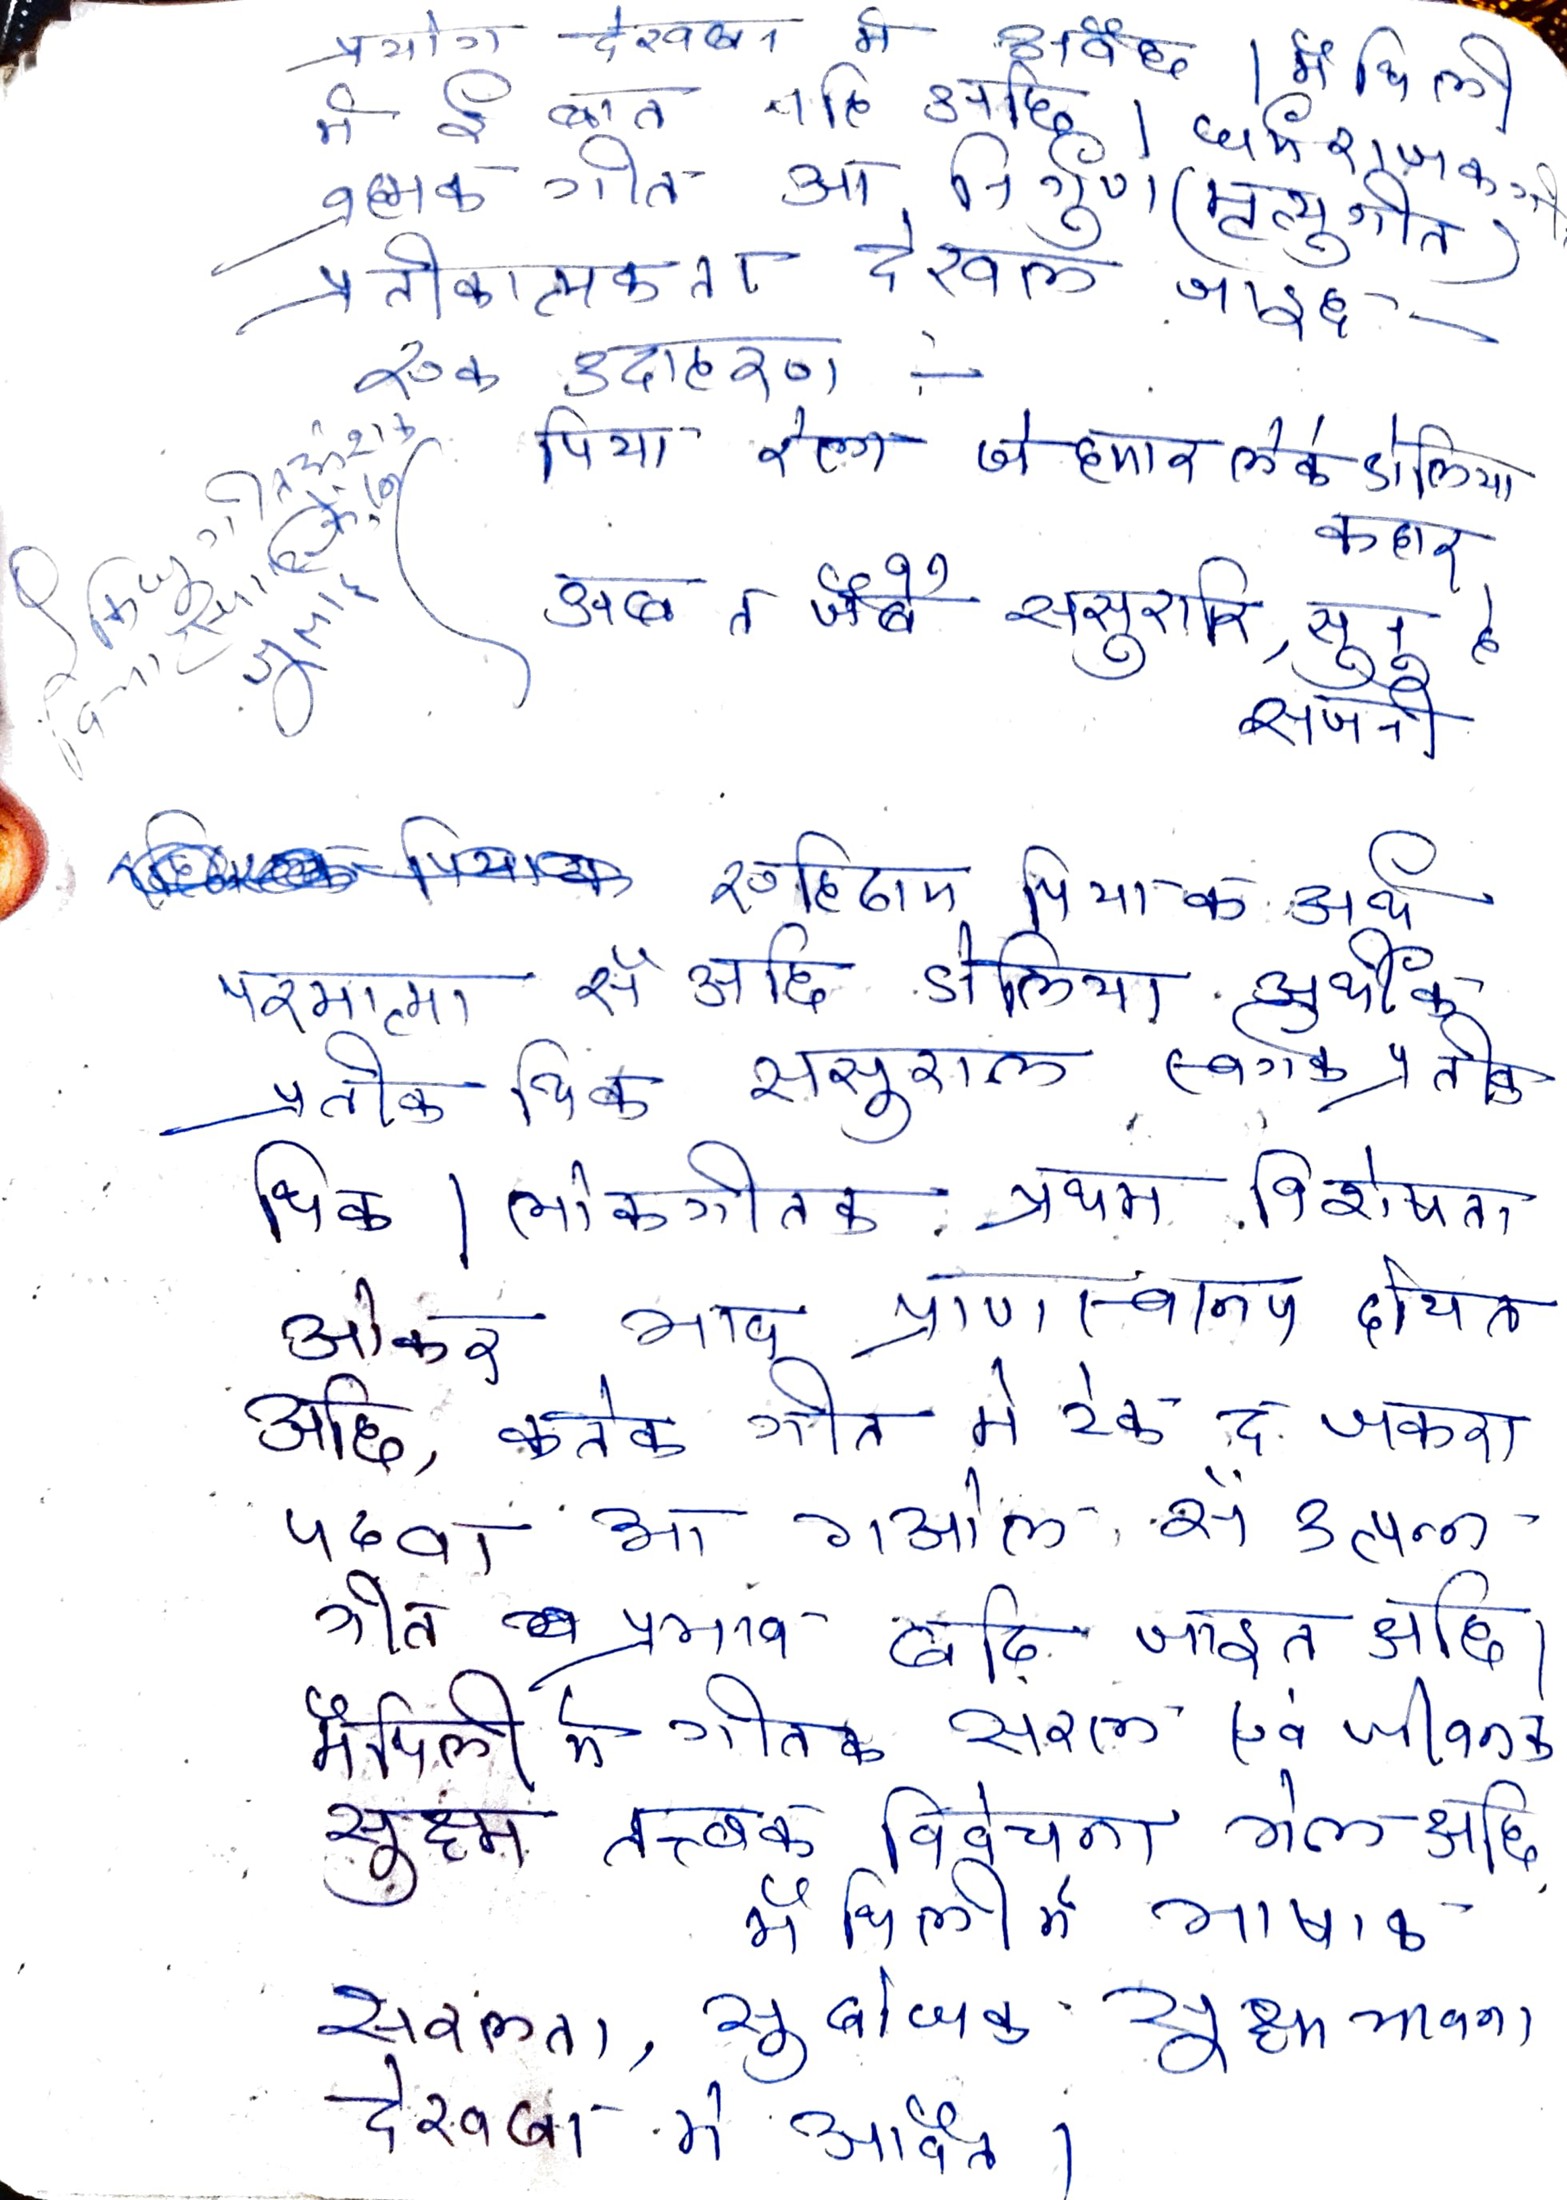 प्रयोग देखबा मे अबैछ । मैथिली
मे ई बात नहि अछि । धर्मराजक गी
ब्रह्मक गीत आ निर्गुण (मृत्युगीत)
प्रतीकात्मकता देखल जाइछ -
एक उदाहरण :-
पिया एला जे हमार लेके डोलिया
कहार
अब त जैबै ससुरारि, सुनु हे
सजनी
एहिठाम पियाक अर्थ
परमात्मा सँ अछि डोलिया अर्थीक
प्रतीक थिक ससुराल स्वर्गक प्रतीक
थिक । लोकगीतक प्रथम विशेषता
ओकर भाव प्राणस्वरूप होयत
अछि, कतेक गीत मे टेक द जकरा
पढबा आ गओल सँ उत्पन्न
गीत प्रभाव बढि जाइत अछि ।
मैथिली मे गीतक सरल एवं जीवनक
सुक्ष्म तत्त्वक विवेचना भेल अछि
मैथिली मे भाषाक
सरलता, सुबोधक सुक्ष्म भावना
देखबा मे आबैत ।